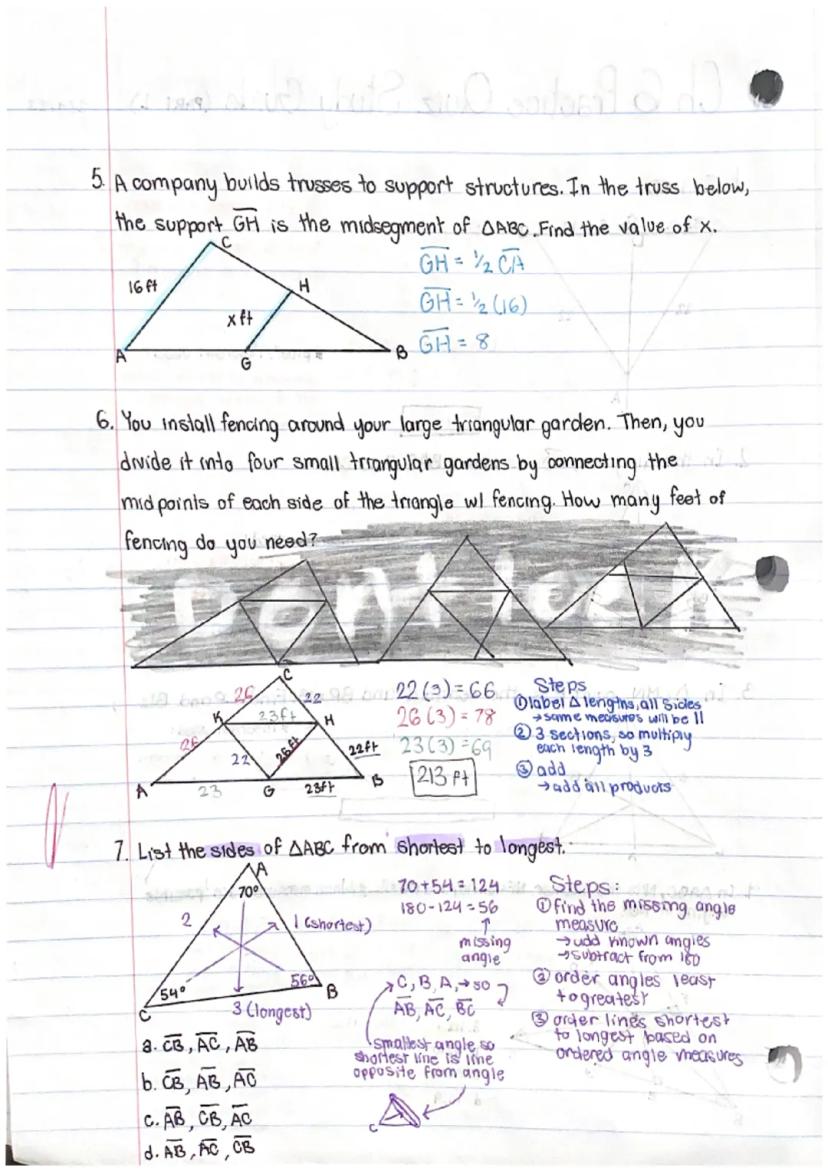 5. A company builds trusses to support structures. In the truss below,
the support GH is the midsegment of △ABC. Find the value of x.
C
16 ft
H
x ft
A
G
B
GH = ½ CA
GH = ½ (16)
GH = 8
6. You install fencing around your large triangular garden. Then, you
divide it into four small triangular gardens by connecting the
midpoints of each side of the triangle w/ fencing. How many feet of
fencing do you need?
C
26
22
K
23ft
H
26
22
26ft
22ft
A
23
G
23ft
B
22(3)=66
26(3)=78
23(3)=69
213 ft
Steps
① label △ lengths, all sides
→ same measures will be ||
② 3 sections, so multiply
each length by 3
③ add
→ add all products
7. List the sides of △ABC from shortest to longest.
A
70°
2
1 (shortest)
54°
56°
B
C
3 (longest)
70+54=124
180-124=56
missing
angle
C, B, A, → so
AB, AC, BC
smallest angle so
shortest line is line
opposite from angle
C
Steps:
① find the missing angle
measure
→ add known angles
→ subtract from 180
② order angles least
to greatest
③ order lines shortest
to longest based on
ordered angle measures
a. CB, AC, AB
b. CB, AB, AC
c. AB, CB, AC
d. AB, AC, CB